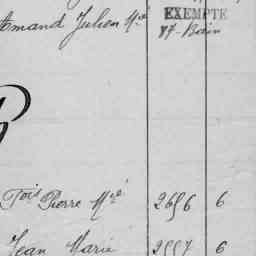 Amand Julien Mie EXEMPTE
Bain
Tois Pierre Mie 2696 6
Jean Marie 2557 6